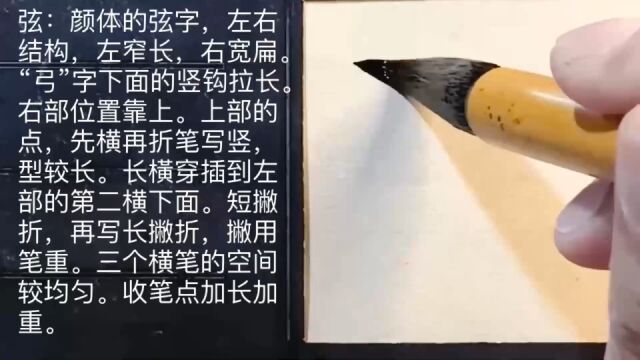 弦：颜体的弦字，左右
结构，左窄长，右宽扁。
“弓”字下面的竖钩拉长。
右部位置靠上。上部的
点，先横再折笔写竖，
型较长。长橫穿插到左
部的第二横下面。短撇
折，再写长撇折，撇用
笔重。三个横笔的空间
较均匀。收笔点加长加
重。